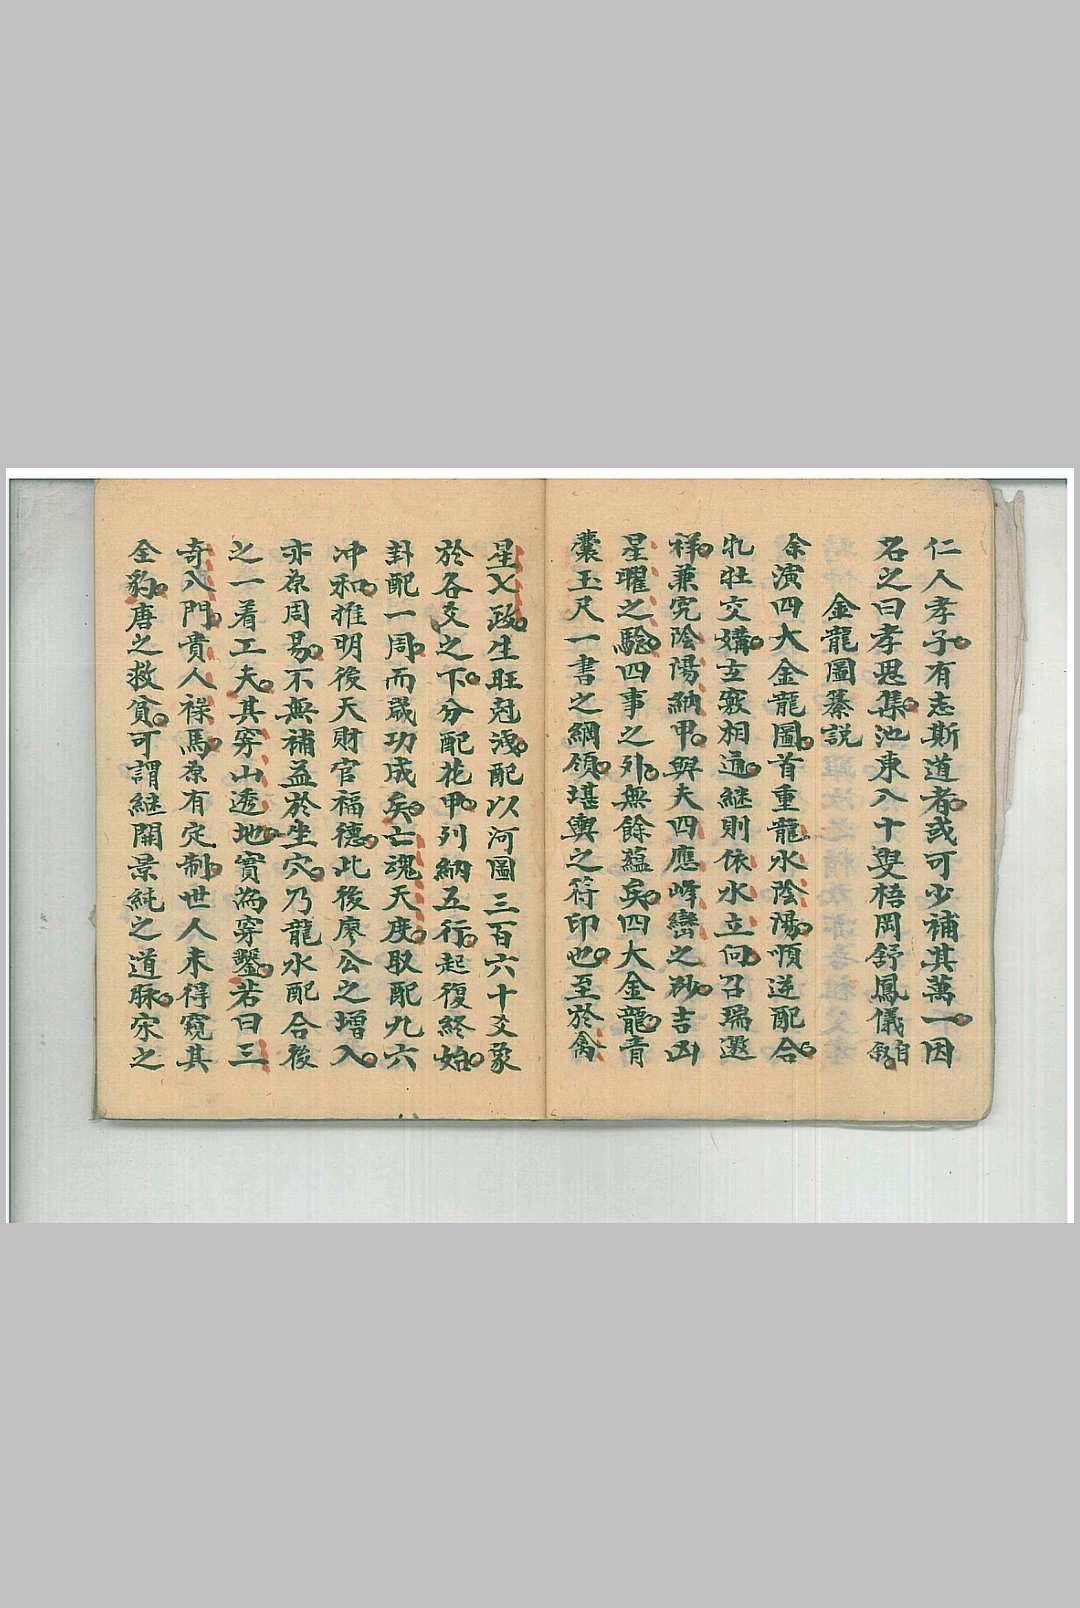 仁人孝子有志斯道者或可少補其萬一因
名之曰孝思集池東八十叟梧岡舒鳳儀自叙
金龍圖纂說
余演四大金龍圖首重龍水陰陽順逆配合
牝牡交媾玄竅相通継則依水立向召瑞迟
祥兼究陰陽納甲與夫四應峰巒之砂吉凶
星曜之騐四事之外無餘蘊矣四大金龍青
囊玉尺一書之綱領堪輿之符印也至於禽
星七政生旺尅洩配以河圖三百六十爻象
於各爻之下分配花甲列納五行起復終始
卦配一周而歲功成矣亡魂天度取配九六
冲和推明後天財官福德此後廖公之增入
亦原周易不無補益於坐穴乃龍水配合後
之一着工夫其穿山透地實為穿鑿若曰三
奇八門貴人祿馬原有定制世人未得窺其
全豹唐之救貧可謂継開景純之道脉宋之